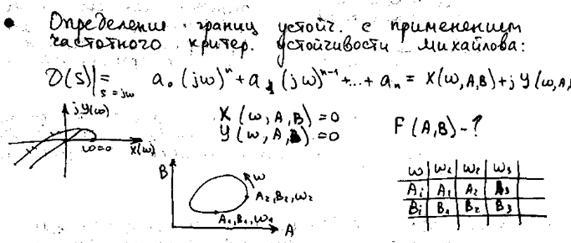 • Определение границ устойч. с применением
частотного критер. устойчивости Михайлова:
D(s)|s=jw = a₀(jw)ⁿ + a₁(jw)ⁿ⁻¹ + ... + aₙ = X(w,A,B) + jY(w,A,
jY(w)
w=0
X(w)
X(w,A,B)=0
Y(w,A,B)=0
F(A,B) - ?
B
w
A₂,B₂,w₂
A₁,B₁,w₁
A
w | w₁ | w₂ | w₃
Ai | A₁ | A₂ | A₃
Bi | B₁ | B₂ | B₃